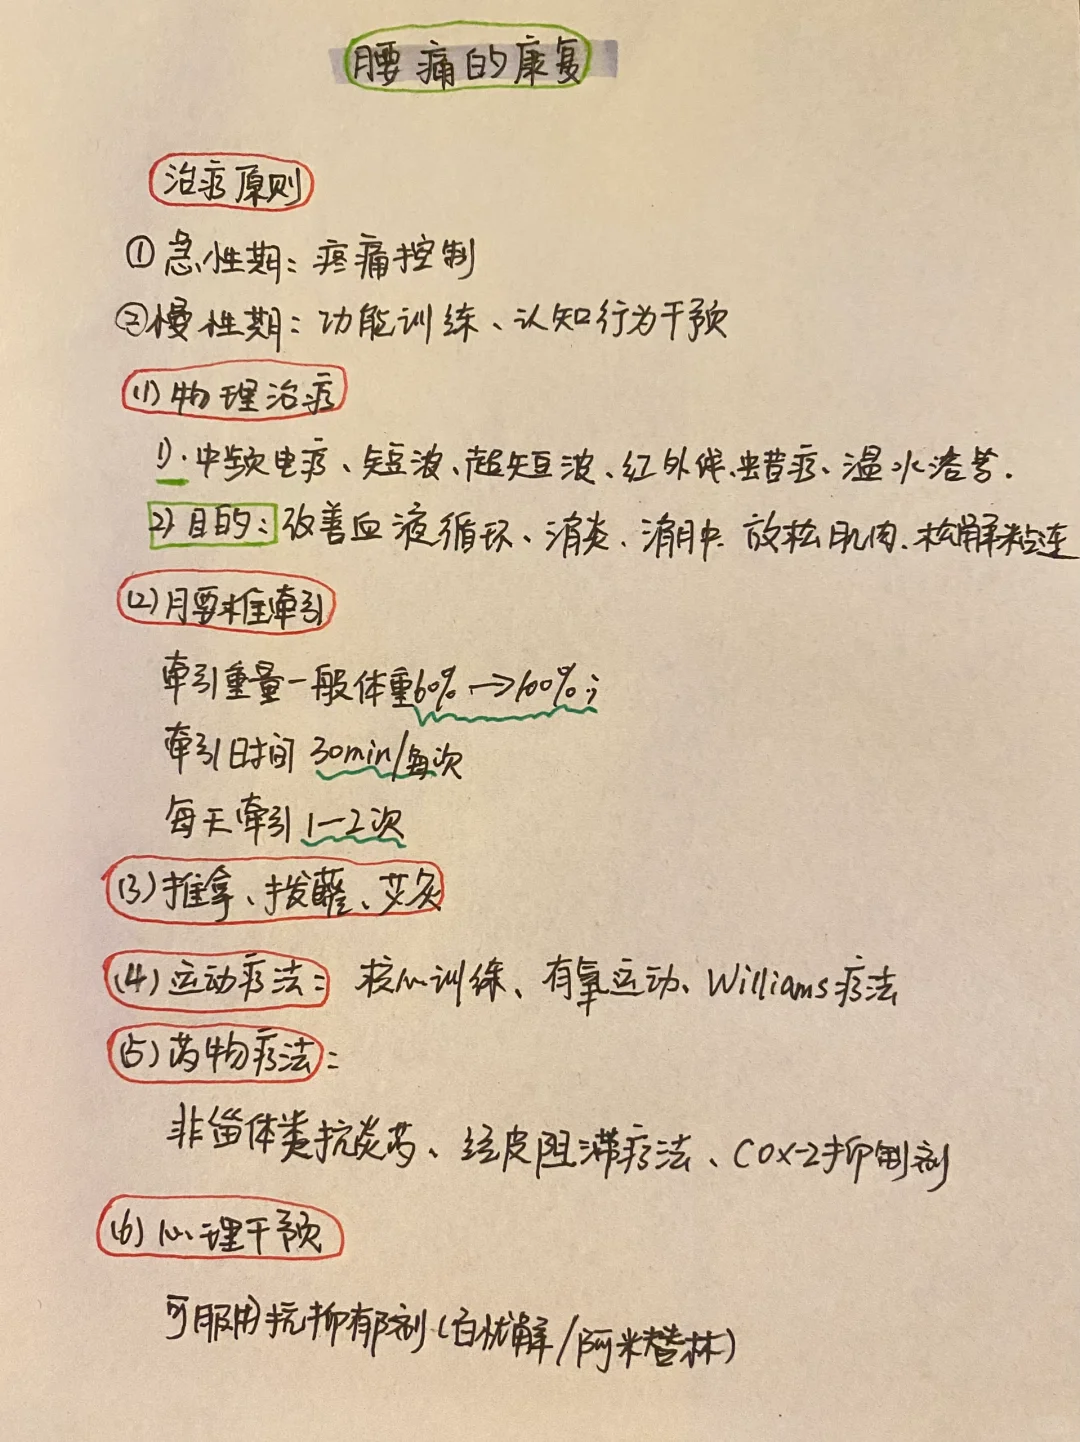 腰痛的康复
治疗原则
①急性期：疼痛控制
②慢性期：功能训练、认知行为干预
(1)物理治疗
1).中频电疗、短波、超短波、红外线、蜡疗、温水浴等.
2)目的：改善血液循环、消炎、消肿、放松肌肉、松解粘连
(2)腰椎牵引
牵引重量一般体重60%→100%；
牵引时间30min/每次
每天牵引1—2次
(3)推拿、拔罐、艾灸
(4)运动疗法：核心训练、有氧运动、Williams疗法
(5)药物疗法：
非甾体类抗炎药、经皮阻滞疗法、COX-2抑制剂
(6)心理干预
可服用抗抑郁剂(百忧解/阿米替林)